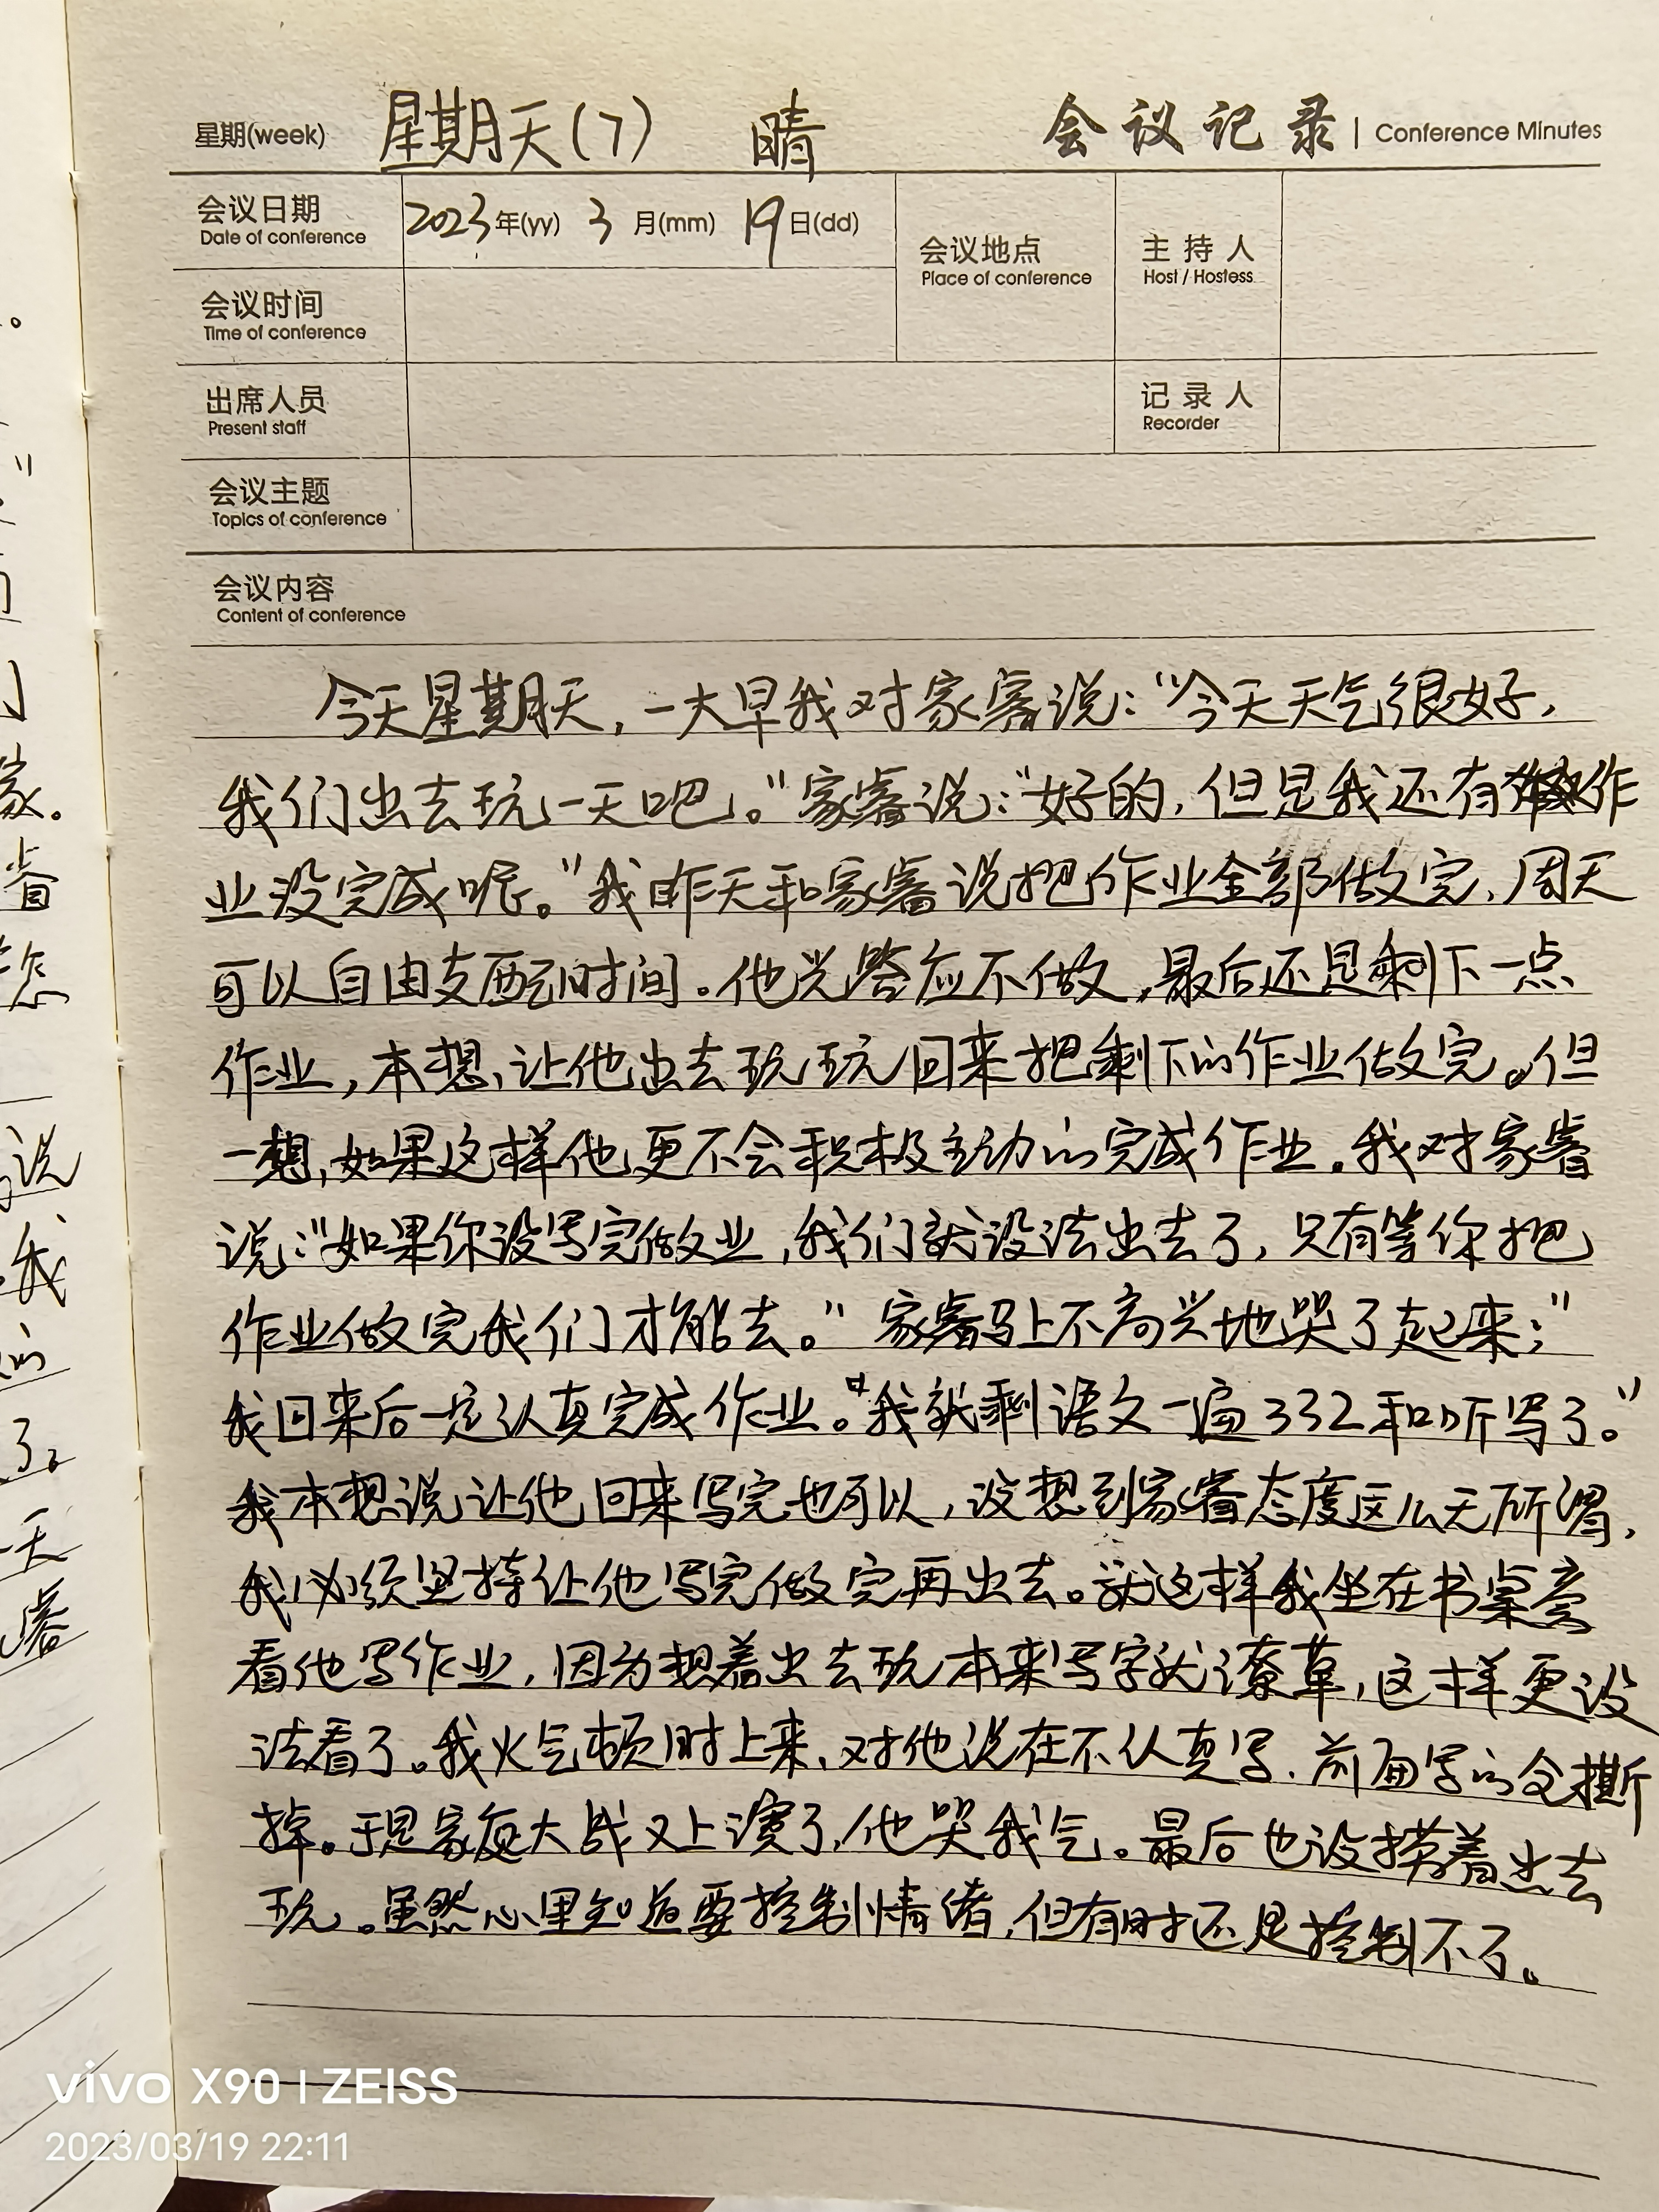 星期(week) 星期天(7) 晴 会议记录 | Conference Minutes
会议日期 2023年(yy) 3月(mm) 19日(dd) 会议地点 主持人
Date of conference Place of conference Host / Hostess
会议时间
Time of conference
出席人员 记录人
Present staff Recorder
会议主题
Topics of conference
会议内容
Content of conference
今天星期天，一大早我对家睿说：“今天天气很好，
我们出去玩一天吧。”家睿说：“好的，但是我还有作
业没完成呢。”我昨天和家睿说把作业全部做完，周天
可以自由支配时间。他光答应不做，最后还是剩下一点
作业，本想，让他出去玩玩回来把剩下的作业做完。但
一想，如果这样他更不会积极主动的完成作业。我对家睿
说：“如果你没写完做业，我们就没法出去了，只有等你把
作业做完我们才能去。”家睿马上不高兴地哭了起来；“
我回来后一定认真完成作业。“我就剩语文一遍332和听写了。”
我本想说让他回来写完也可以，没想到家睿态度这么无所谓，
我必须坚持让他写完做完再出去。就这样我坐在书桌旁
看他写作业，因为想着出去玩本来写字就潦草，这样更没
法看了。我火气顿时上来，对他说在不认真写，前面写的全撕
掉。于是家庭大战又上演了，他哭我气。最后也没捞着出去
玩。虽然心里知道要控制情绪，但有时还是控制不了。
vivo X90 | ZEISS
2023/03/19 22:11